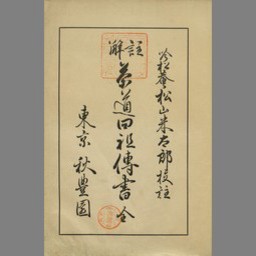 吟松菴松山米太郎校註
註解
茶道四祖傳書 全
東京 秋豊園